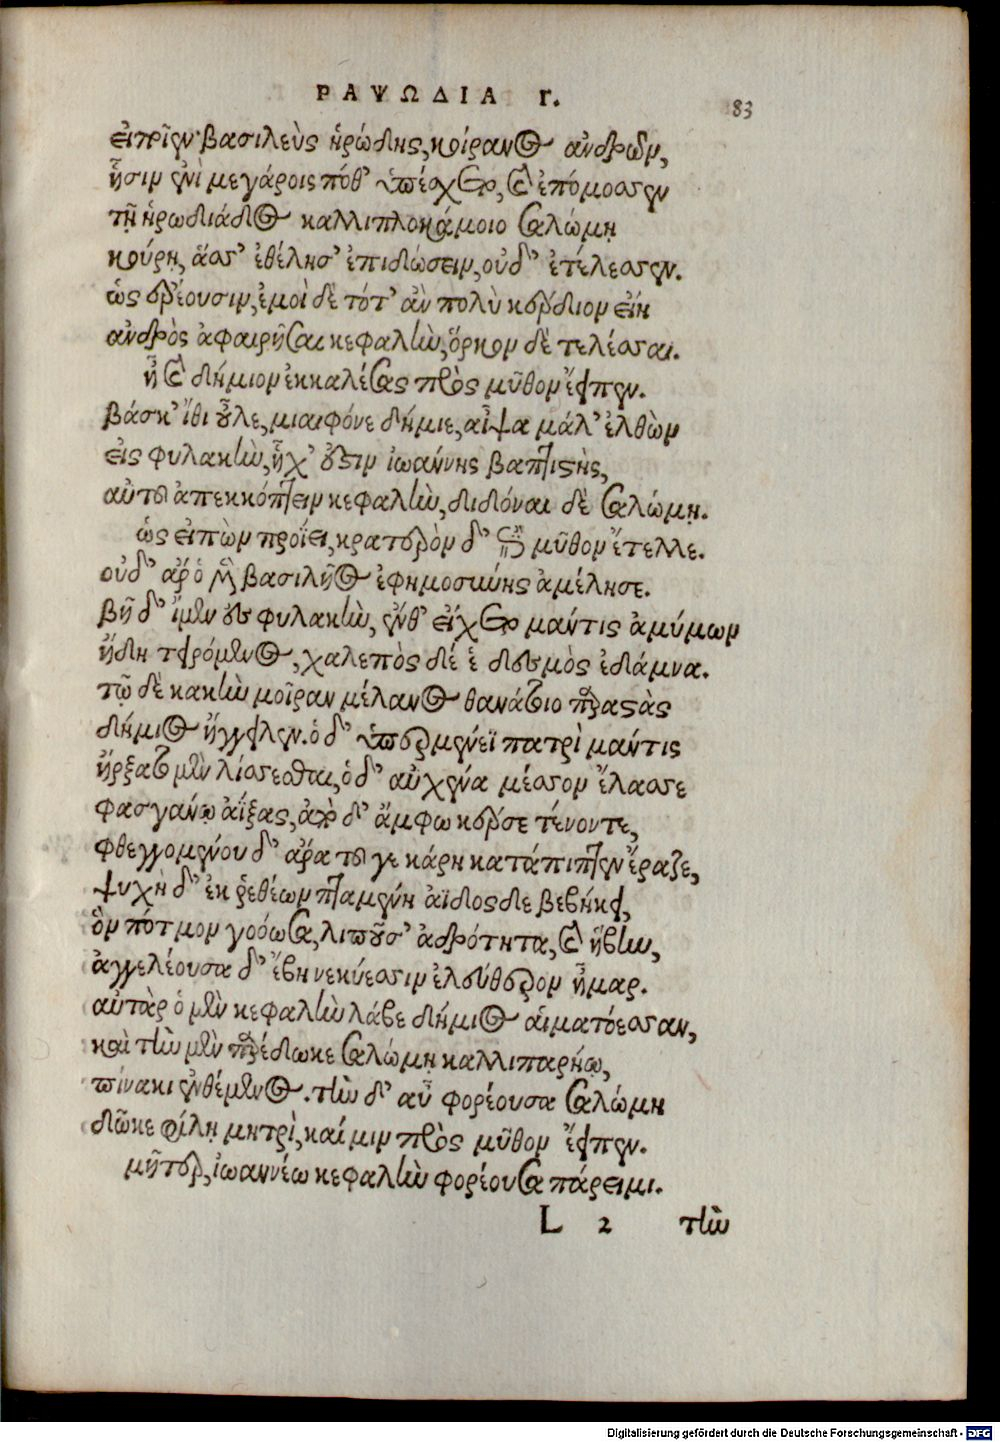 ΡΑΨΩΔΙΑ Γ. 83
εἰπεῖν βασιλεὺς ἡρώδης, κοίρανος ἀνδρῶν,
ᾗσιν ἐνὶ μεγάροις πόθ' ὑπέσχετο, καὶ ἐπόμοσσεν
τῇ ἡρωδιάδος καλλιπλοκάμοιο σαλώμῃ
κούρῃ, ἅσσ' ἐθέλησ' ἐπιδώσειν, οὐδ' ἐτέλεσσεν.
ὡς ἐρέουσιν, ἐμοὶ δὲ τότ' ἂν πολὺ κέρδιον εἴη
ἀνδρὸς ἀφαιρῆσαι κεφαλὴν, ὅρκον δὲ τελέσσαι.
ἦ καὶ δήμιον ἐκκαλέσας πρὸς μῦθον ἔειπεν.
βάσκ' ἴθι οὖλε, μιαιφόνε δήμιε, αἶψα μάλ' ἐλθὼν
εἰς φυλακὴν, ᾗχ' οὗτιν ἰωάννης βαπτιστὴς,
αὐτοῦ ἀπεκκόπτειν κεφαλὴν, διδόναι δὲ σαλώμῃ.
ὡς εἰπὼν προΐει, κρατερὸν δ' ἐπὶ μῦθον ἔτελλε.
οὐδ' ἄρ ὁ μὴ βασιλῆος ἐφημοσύνης ἀμέλησε.
βῆ δ' ἴμεν εἰς φυλακὴν, ἔνθ' εἴχετο μάντις ἀμύμων
ἤδη τειρόμενος, χαλεπὸς δέ ἑ δεσμὸς ἐδάμνα.
τῷ δὲ κακὴν μοῖραν μέλανος θανάτοιο παραστὰς
δήμιος ἤγγειλεν. ὁ δ' ὑπερμενέϊ πατρὶ μάντις
ἤρξατο μὲν λίσσεσθαι, ὁ δ' αὐχένα μέσσον ἔλασσε
φασγάνῳ ἀΐξας, ἀπὸ δ' ἄμφω κέρσε τένοντε,
φθεγγομένου δ' ἄρα τοῦ γε κάρη κατάπιπτεν ἔραζε,
ψυχὴ δ' ἐκ ῥεθέων πταμένη ἀϊδοσδε βεβήκει,
ὃν πότμον γοόωσα, λιποῦσ' ἀδρότητα, καὶ ἥβην,
ἀγγελέουσα δ' ἔβη νεκύεσσιν ἐλεύθερον ἦμαρ.
αὐτὰρ ὁ μὲν κεφαλὴν λάβε δήμιος αἱματόεσσαν,
καὶ τὴν μὲν παρέδωκε σαλώμῃ καλλιπαρήῳ,
πίνακι ἐνθέμενος. τὴν δ' αὖ φορέουσα σαλώμη
δῶκε φίλῃ μητρὶ, καί μιν πρὸς μῦθον ἔειπεν.
μῆτερ, ἰωαννέω κεφαλὴν φορέουσα πάρειμι.
L 2 τὴν
Digitalisierung gefördert durch die Deutsche Forschungsgemeinschaft - DFG